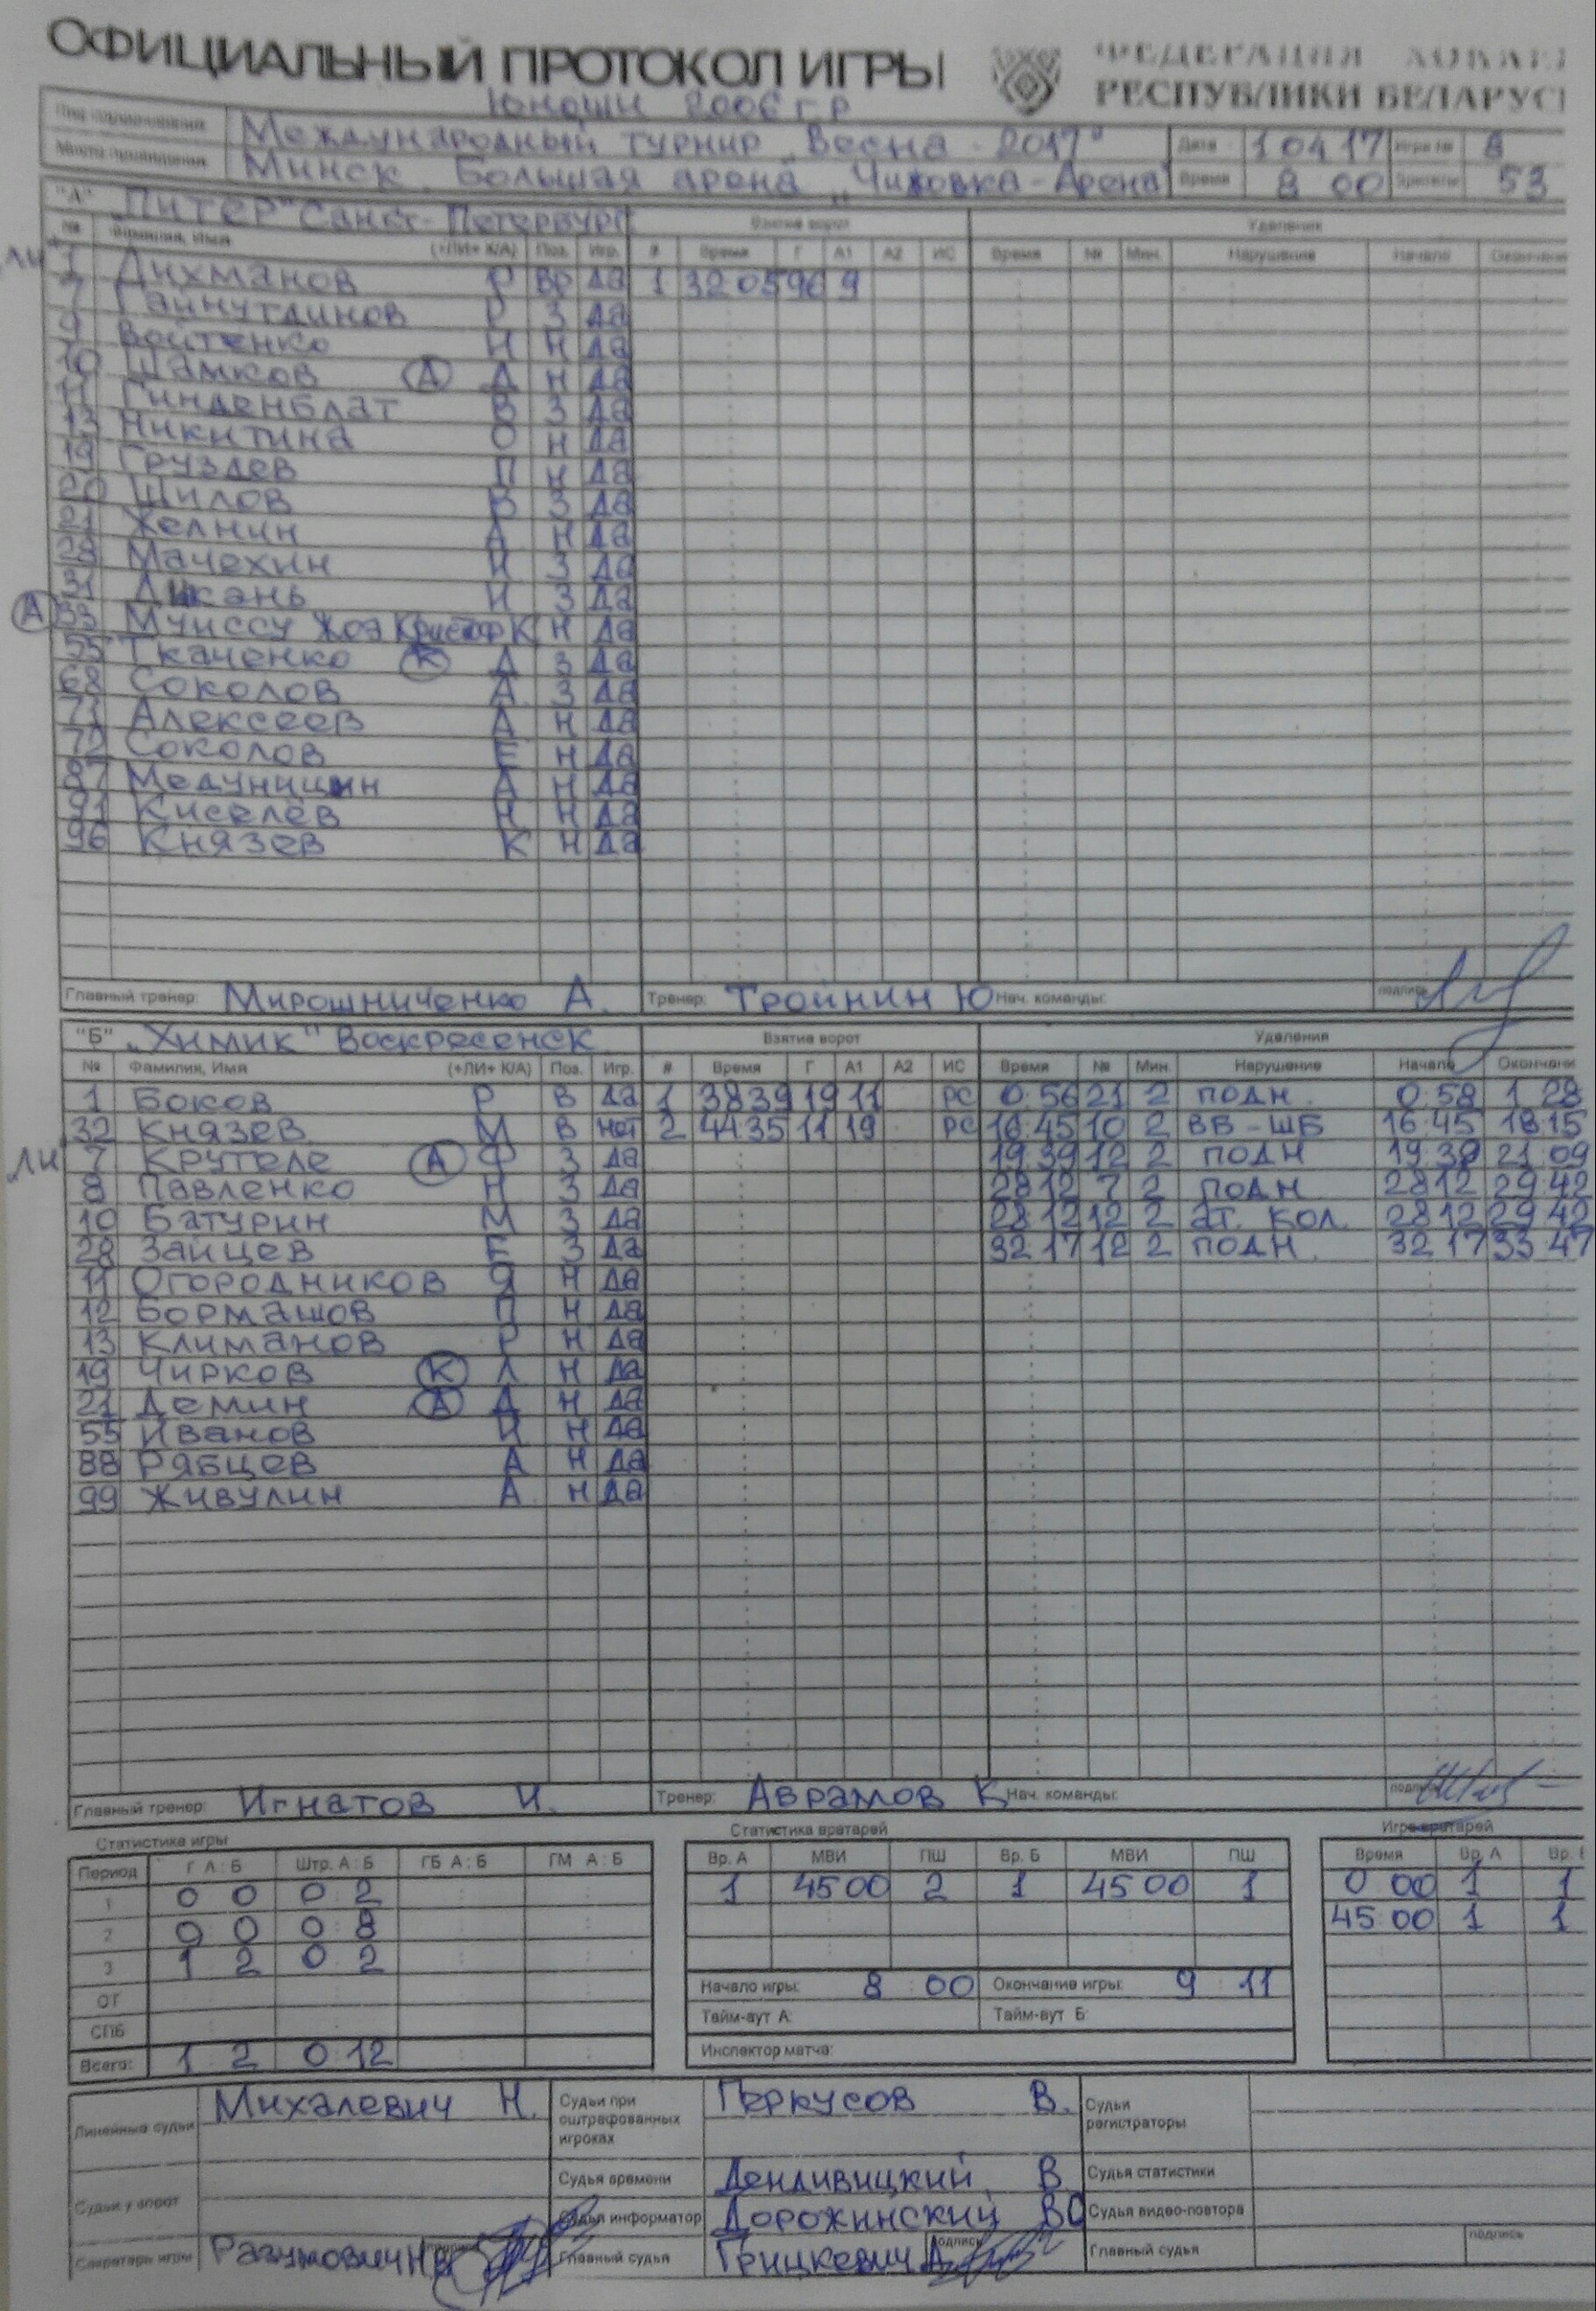 ОФИЦИАЛЬНЫЙ ПРОТОКОЛ ИГРЫ
ФЕДЕРАЦИЯ ХОККЕЯ
РЕСПУБЛИКИ БЕЛАРУСЬ
Юноши 2006 г.р
Вид соревнования Международный турнир „Весна - 2017" Дата 1 04 17 Игра № 8
Место проведения Минск, Большая арена „Чижовка-Арена" Время 8 00 Зрители 53
"А" „Питер" Санкт-Петербург Взятие ворот Удаления
№ Фамилия, Имя (+ЛИ+ К/А) Поз. Игр. # Время Г А1 А2 ИС Время № Мин. Нарушение Начало Окончание
ЛИ 1 Дихманов Р Вр да 1 32 05 96 9
7 Гайнутдинов Р З да
9 Войтенко Н Н да
10 Шамков (А) Д Н да
11 Гинденблат В З да
13 Никитина О Н да
19 Груздев П Н да
20 Шилов В З да
21 Желнин А Н да
28 Мачехин И З да
31 Дикань И З да
(А) 33 Муиссу Жоэ Кристоф К Н да
55 Ткаченко (К) Д З да
68 Соколов А З да
71 Алексеев Д Н да
72 Соколов Е Н да
87 Медуницын А Н да
91 Киселёв Н Н да
96 Князев К Н да
Главный тренер: Мирошниченко А. Тренер: Тройнин Ю Нач. команды: подпись
"Б" „Химик" Воскресенск Взятие ворот Удаления
№ Фамилия, Имя (+ЛИ+ К/А) Поз. Игр. # Время Г А1 А2 ИС Время № Мин. Нарушение Начало Окончани
1 Боков Р В да 1 38 39 19 11 РС 0:56 21 2 подн. 0:58 1 28
32 Князев М В нет 2 44 35 11 19 РС 16:45 10 2 вб-шб 16:45 18:15
ЛИ 7 Крутеле (А) Ф З да 19 39 12 2 подн 19:39 21 09
8 Павленко Н З да 28 12 7 2 подн 28 12 29 42
10 Батурин М З да 28 12 12 2 ат. кол. 28 12 29 42
28 Зайцев Е З да 32 17 12 2 подн. 32 17 33 47
11 Огородников Я Н да
12 Бормашов П Н да
13 Климанов Р Н да
19 Чирков (К) Л Н да
21 Демин (А) Д Н да
55 Иванов И Н да
88 Рябцев А Н да
99 Живулин А. Н да
Главный тренер: Игнатов И. Тренер: Аврамов К Нач. команды: подпись
Статистика игры Статистика вратарей Игра вратарей
Период Г А:Б Штр. А:Б ГБ А:Б ГМ А:Б Вр. А МВИ ПШ Вр. Б МВИ ПШ Время Вр. А Вр. Б
1 0 0 0 2 1 45 00 2 1 45 00 1 0 00 1 1
2 0 0 0 8 45 00 1 1
3 1 2 0 2
Начало игры: 8 : 00 Окончание игры: 9 : 11
ОТ Тайм-аут А: Тайм-аут Б:
СПБ
Всего: 1 2 0 12 Инспектор матча:
Линейные судьи Михалевич Н. Судьи при оштрафованных игроках Геркусов В. Судьи регистраторы
Судьи у ворот Судья времени Дендивицкий В Судья статистики
Судья информатор Дорожинский ВС Судья видео-повтора
Секретарь игры Разумович НВ подпись Главный судья Грицкевич А подпись Главный судья подпись